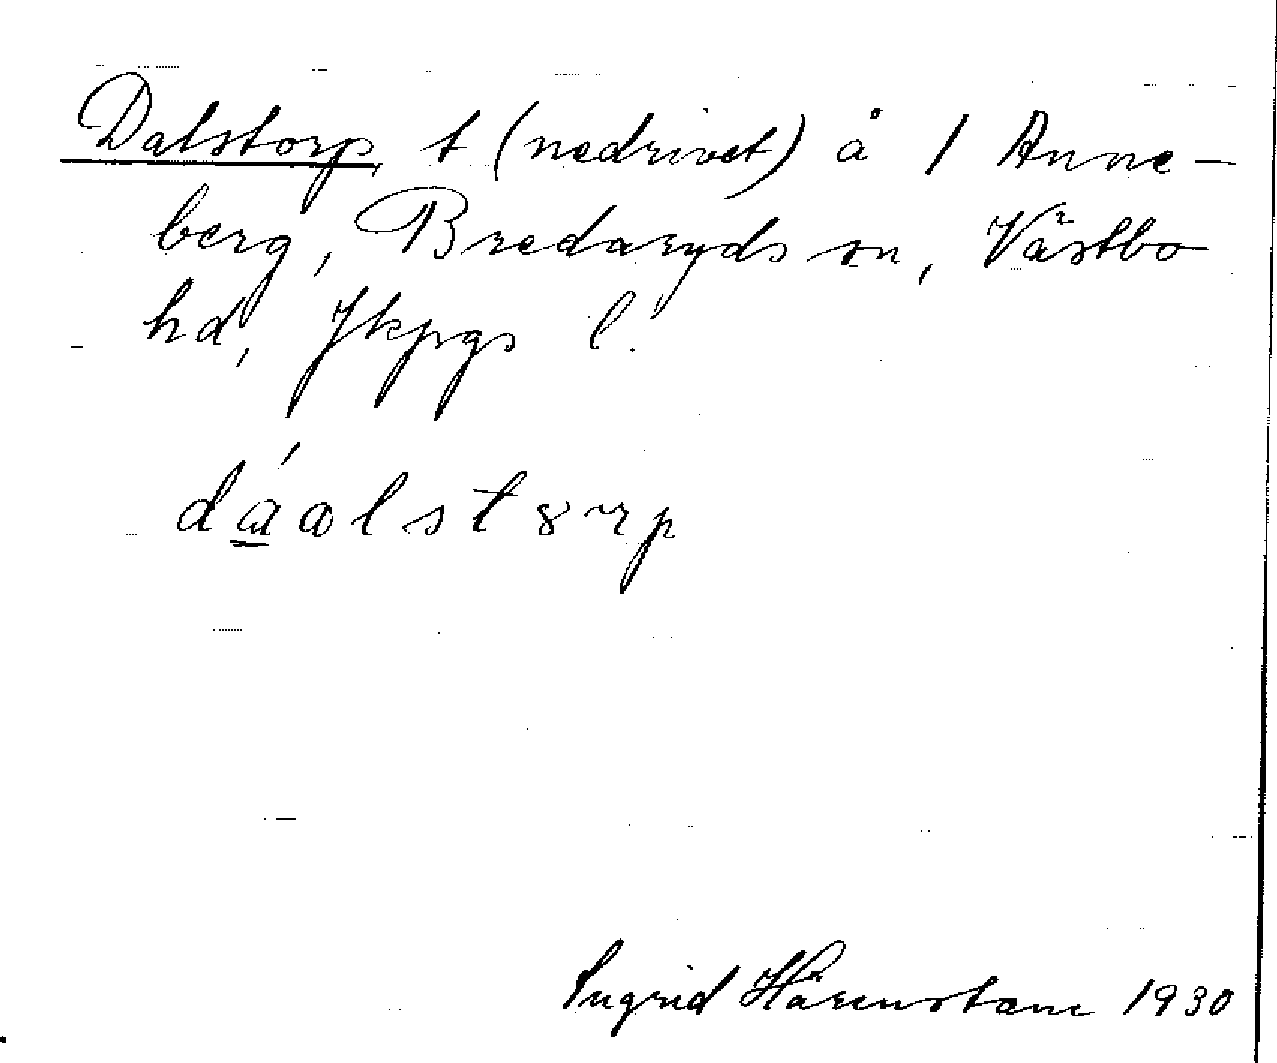 Dalstorp, t (nedrivet) å 1 Anne-
berg, Bredaryds sn, Västbo
hd, Jkpgs l.
dáɑlstȣrp
Ingrid Härenstam 1930